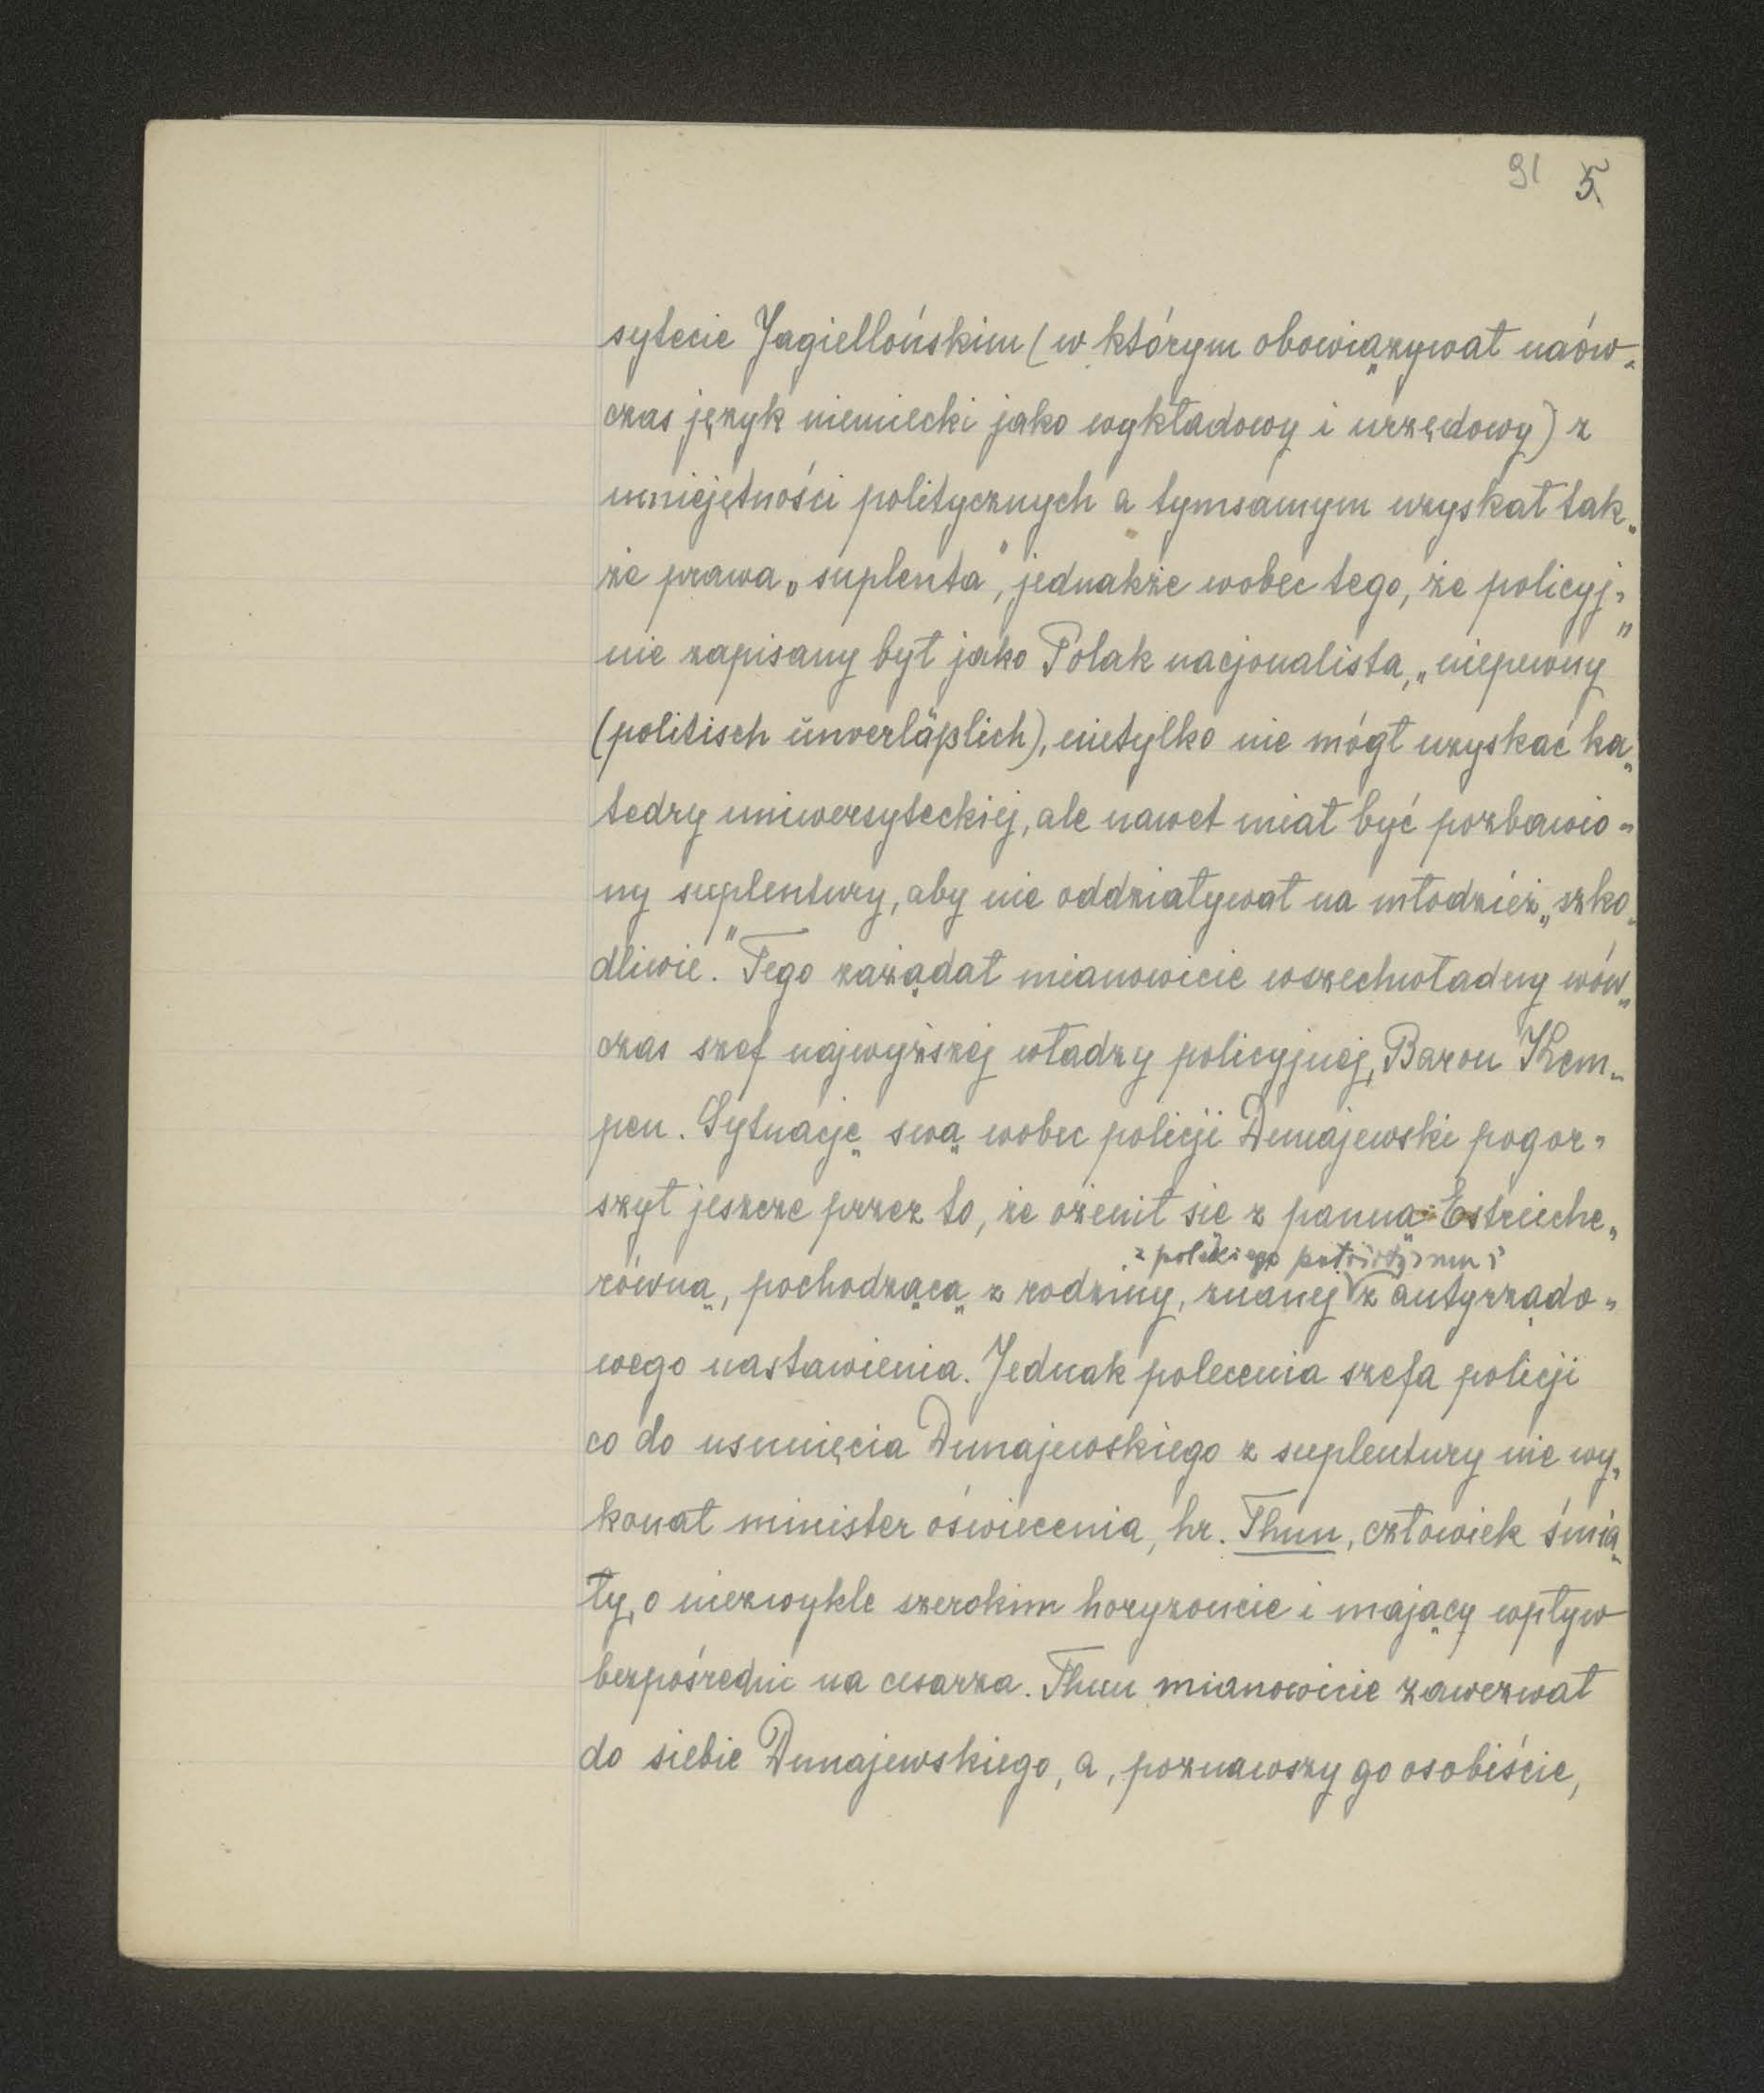 91 5.
sytecie Jagiellońskim (w którym obowiązywał naów-
czas język niemiecki jako wykładowy i urzędowy) z
umiejętności politycznych a tymsamym uzyskał tak-
że prawa „suplenta", jednakże wobec tego, że policyj-
nie zapisany był jako Polak nacjonalista, „niepewny"
(politisch ŭnverläßlich), nietylko nie mógł uzyskać ka-
tedry uniwersyteckiej, ale nawet miał być pozbawio-
ny suplentury, aby nie oddziaływał na młodzież „szko-
dliwie." Tego zażądał mianowicie wszechwładny wów-
czas szef najwyższej władzy policyjnej, Baron Kem-
pen. Sytuację swą wobec policji Dunajewski pogor-
szył jeszcze przez to, że ożenił się z panną Estreiche-
z polskiego patriotyzmu i
równą, pochodzącą z rodziny, znanej z antyrządo-
wego nastawienia. Jednak polecenia szefa policji
co do usunięcia Dunajewskiego z suplentury nie wy-
konał minister oświecenia, hr. Thun, człowiek śmia-
ły, o niezwykle szerokim horyzoncie i mający wpływ
bezpośredni na cesarza. Thun mianowicie zawezwał
do siebie Dunajewskiego, a, poznawszy go osobiście,